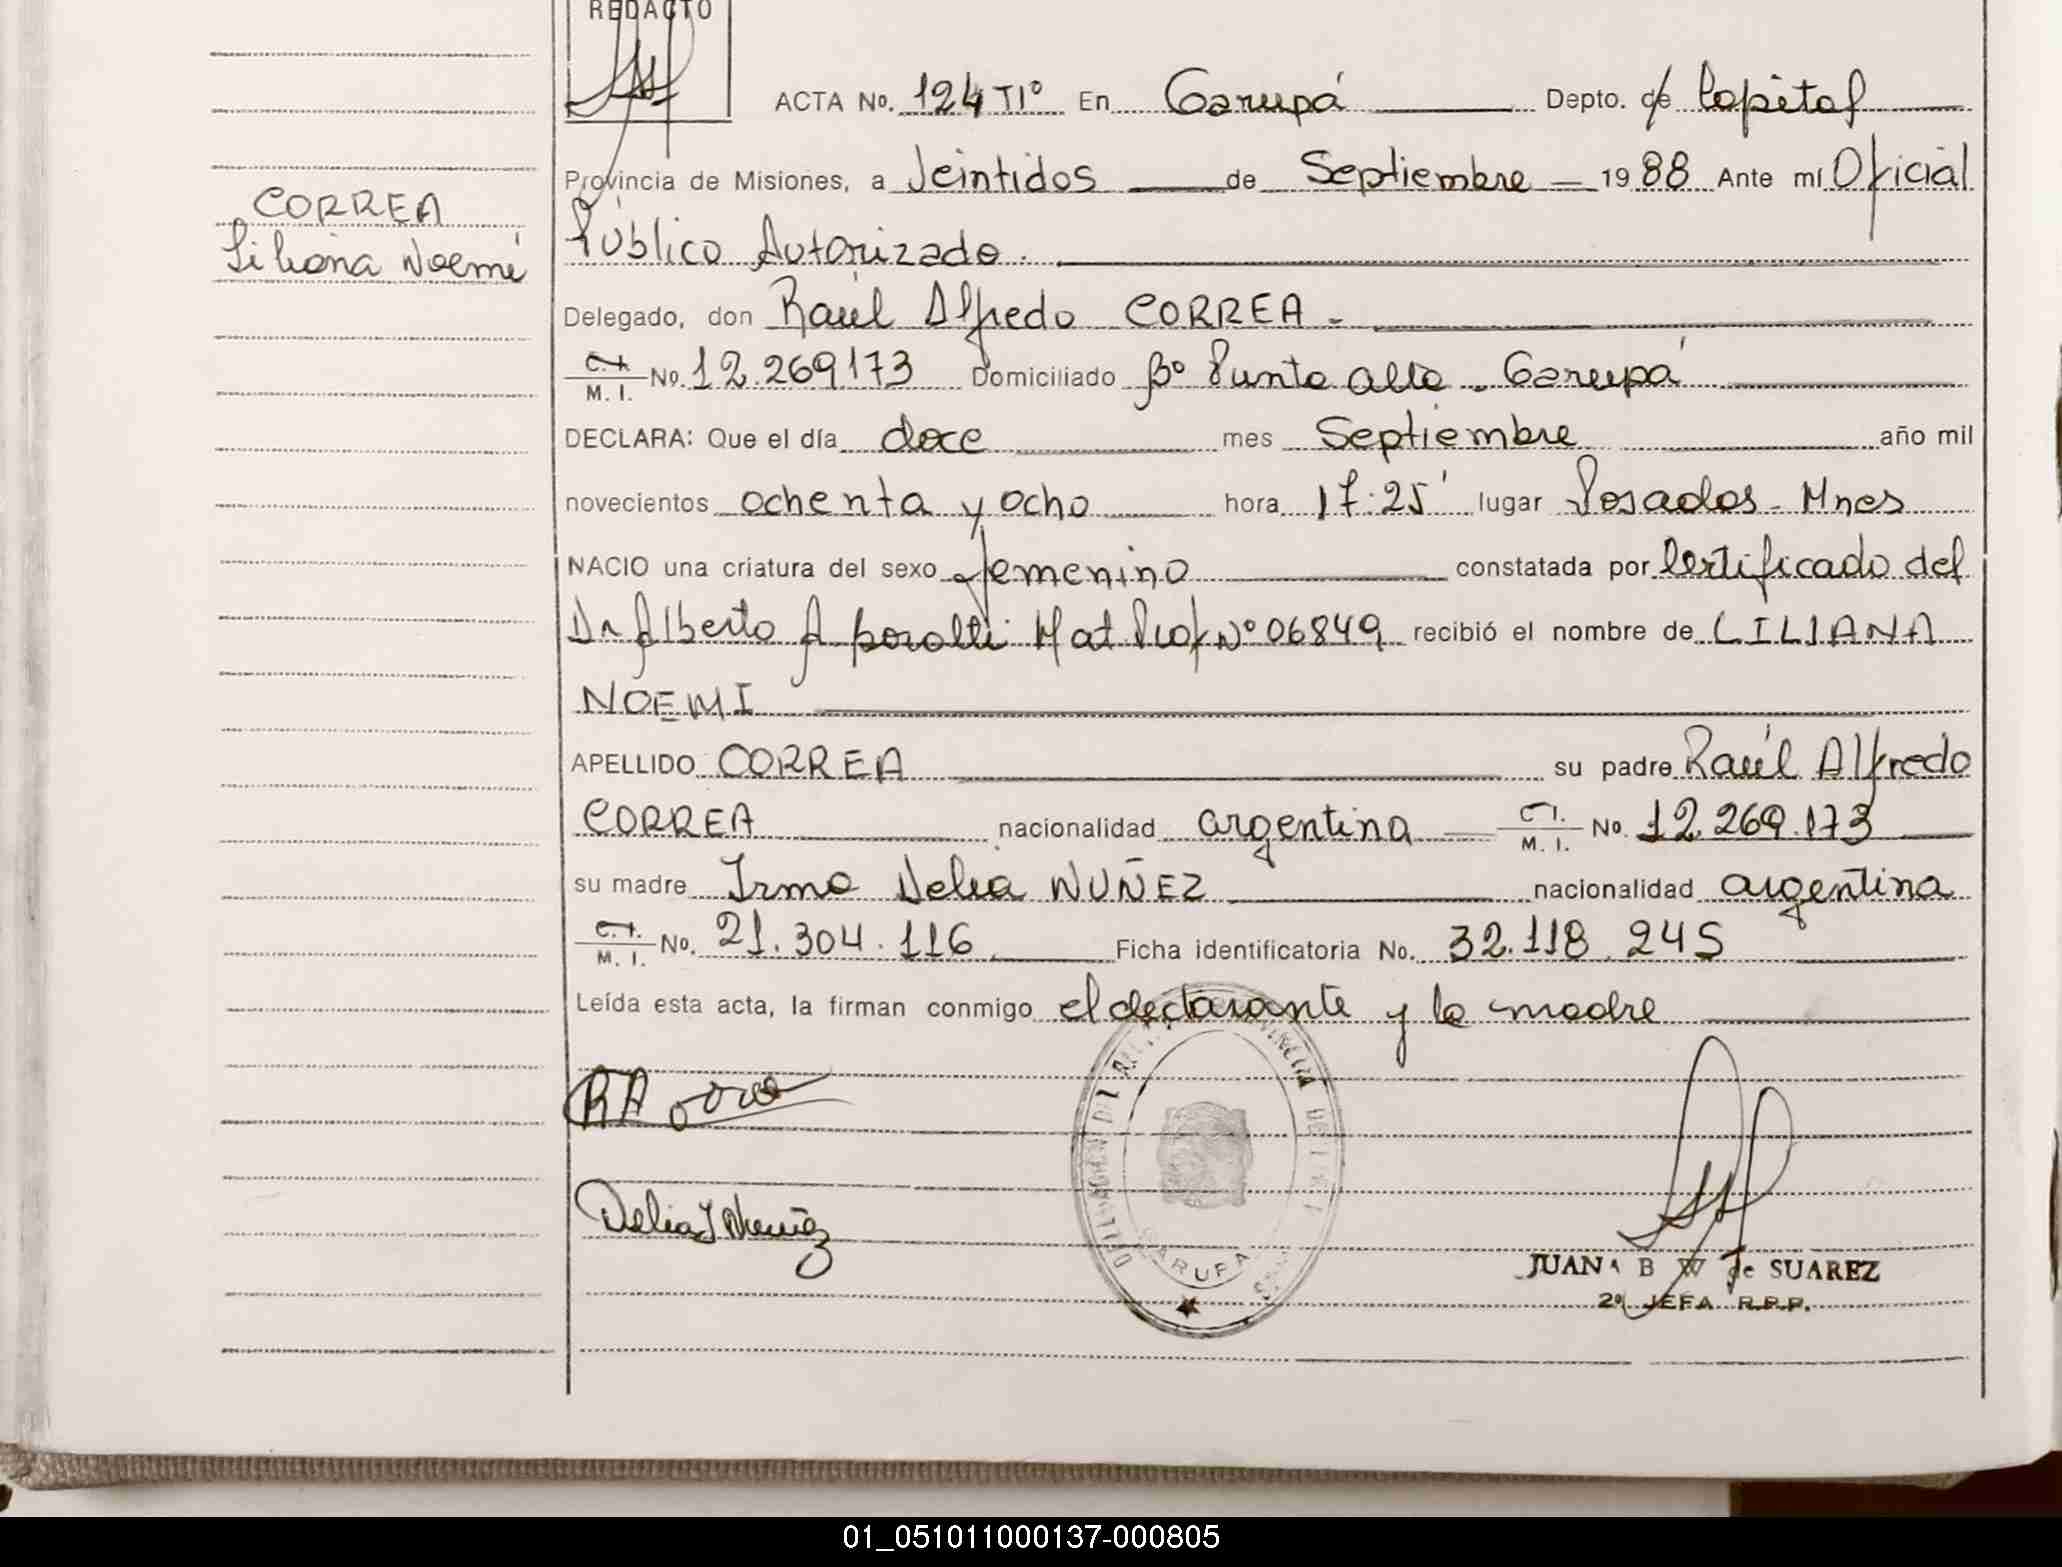 REDACTO
ACTA No. 124 TIº En Garupá Depto. de Capital
Provincia de Misiones, a Veintidos de Septiembre 1988 Ante mí Oficial
Público Autorizado.
CORREA
Liliana Noemí
Delegado, don Raúl Alfredo CORREA -
C. I. M. I. No. 12.269173 Domiciliado Bº Punta alta - Garupá
DECLARA: Que el día doce mes Septiembre año mil
novecientos ochenta y ocho hora 17:25' lugar Posadas - Mnes
NACIO una criatura del sexo femenino constatada por Certificado del
Dr Alberto A Mat Prof Nº 06849 recibió el nombre de LILIANA
NOEMI
APELLIDO CORREA su padre Raúl Alfredo
CORREA nacionalidad argentina C. I. M. I. No. 12.269.173
su madre Irma Delia NUÑEZ nacionalidad argentina
C. I. M. I. No. 21.304.116 Ficha identificatoria No. 32.118.245
Leída esta acta, la firman conmigo el declarante y la madre
RA
Delia I Nuñez
PROVINCIA DE
GARUPA
JUANA B W de SUAREZ
2º JEFA R.P.P.
01_051011000137-000805